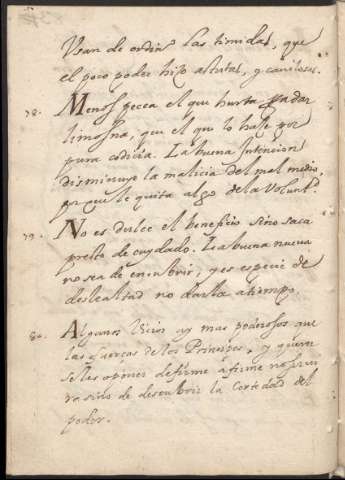 Usan de ordin.º las timidas, que
el poco poder hizo astutas, y cavilosas.
78. Menos pecca el que hurta para dar
limosna, que el que lo hase por
pura codicia. La buena Intencion
disminuye la malicia del mal medio,
porque le quita algo de la Volunt.d
79. No es dulce el beneficio sino saca
presto de cuydado. La buena nueva
no se a de encubrir, y es especie de
deslealtad no darla a tiempo.
80. Algunos Vicios ay mas poderosos que
las fuerças de los Principes, y querer
seles oponer de firme a firme no sirve
sino de descubrir la Cortedad del
poder.